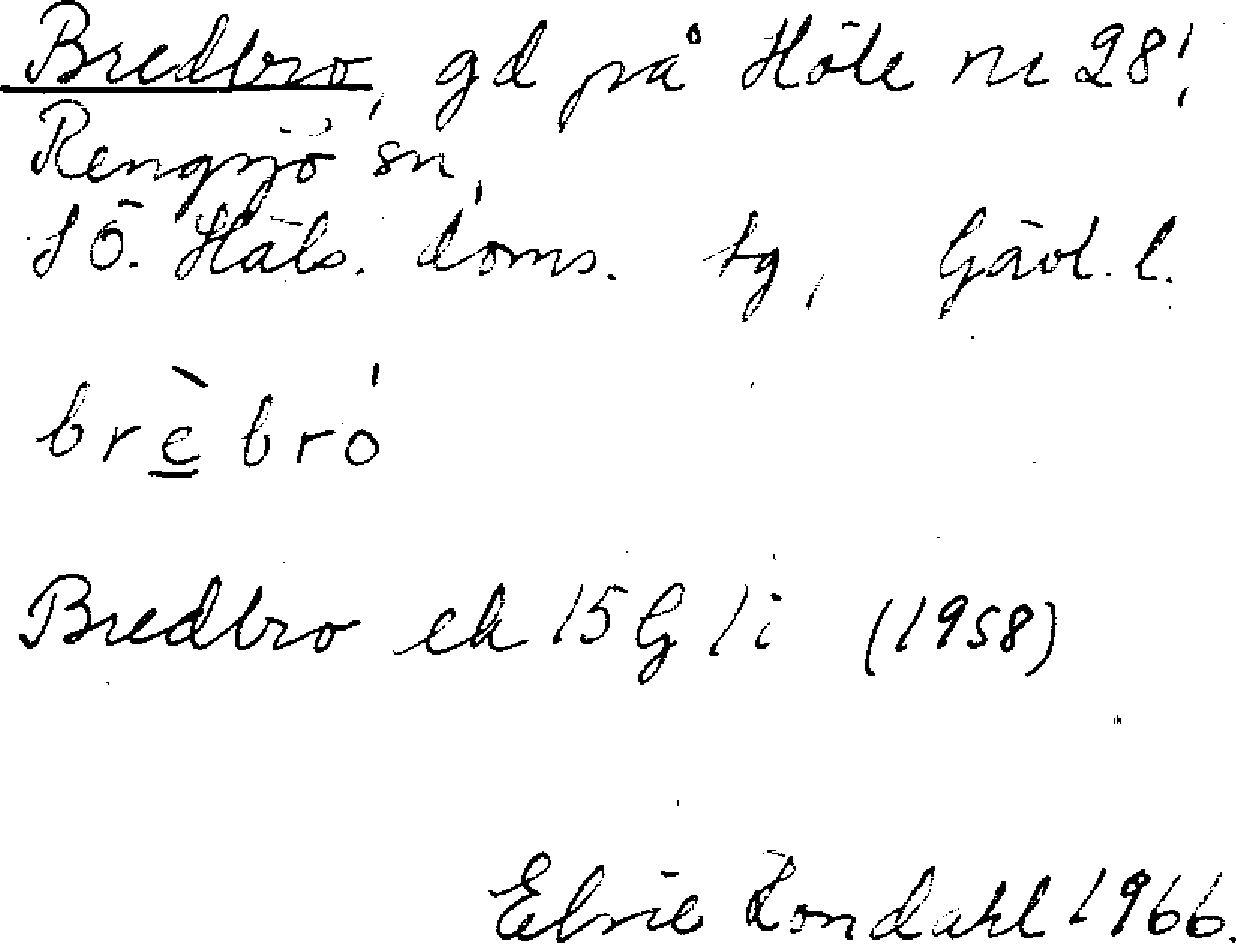 Bredbro, gd på Höle nr 28¹,
Rengsjö sn,
SÖ. Häls. doms. tg, Gävl. l.
brèbró
Bredbro ek 15 G 1i (1958)
Elsie Londahl 1966.